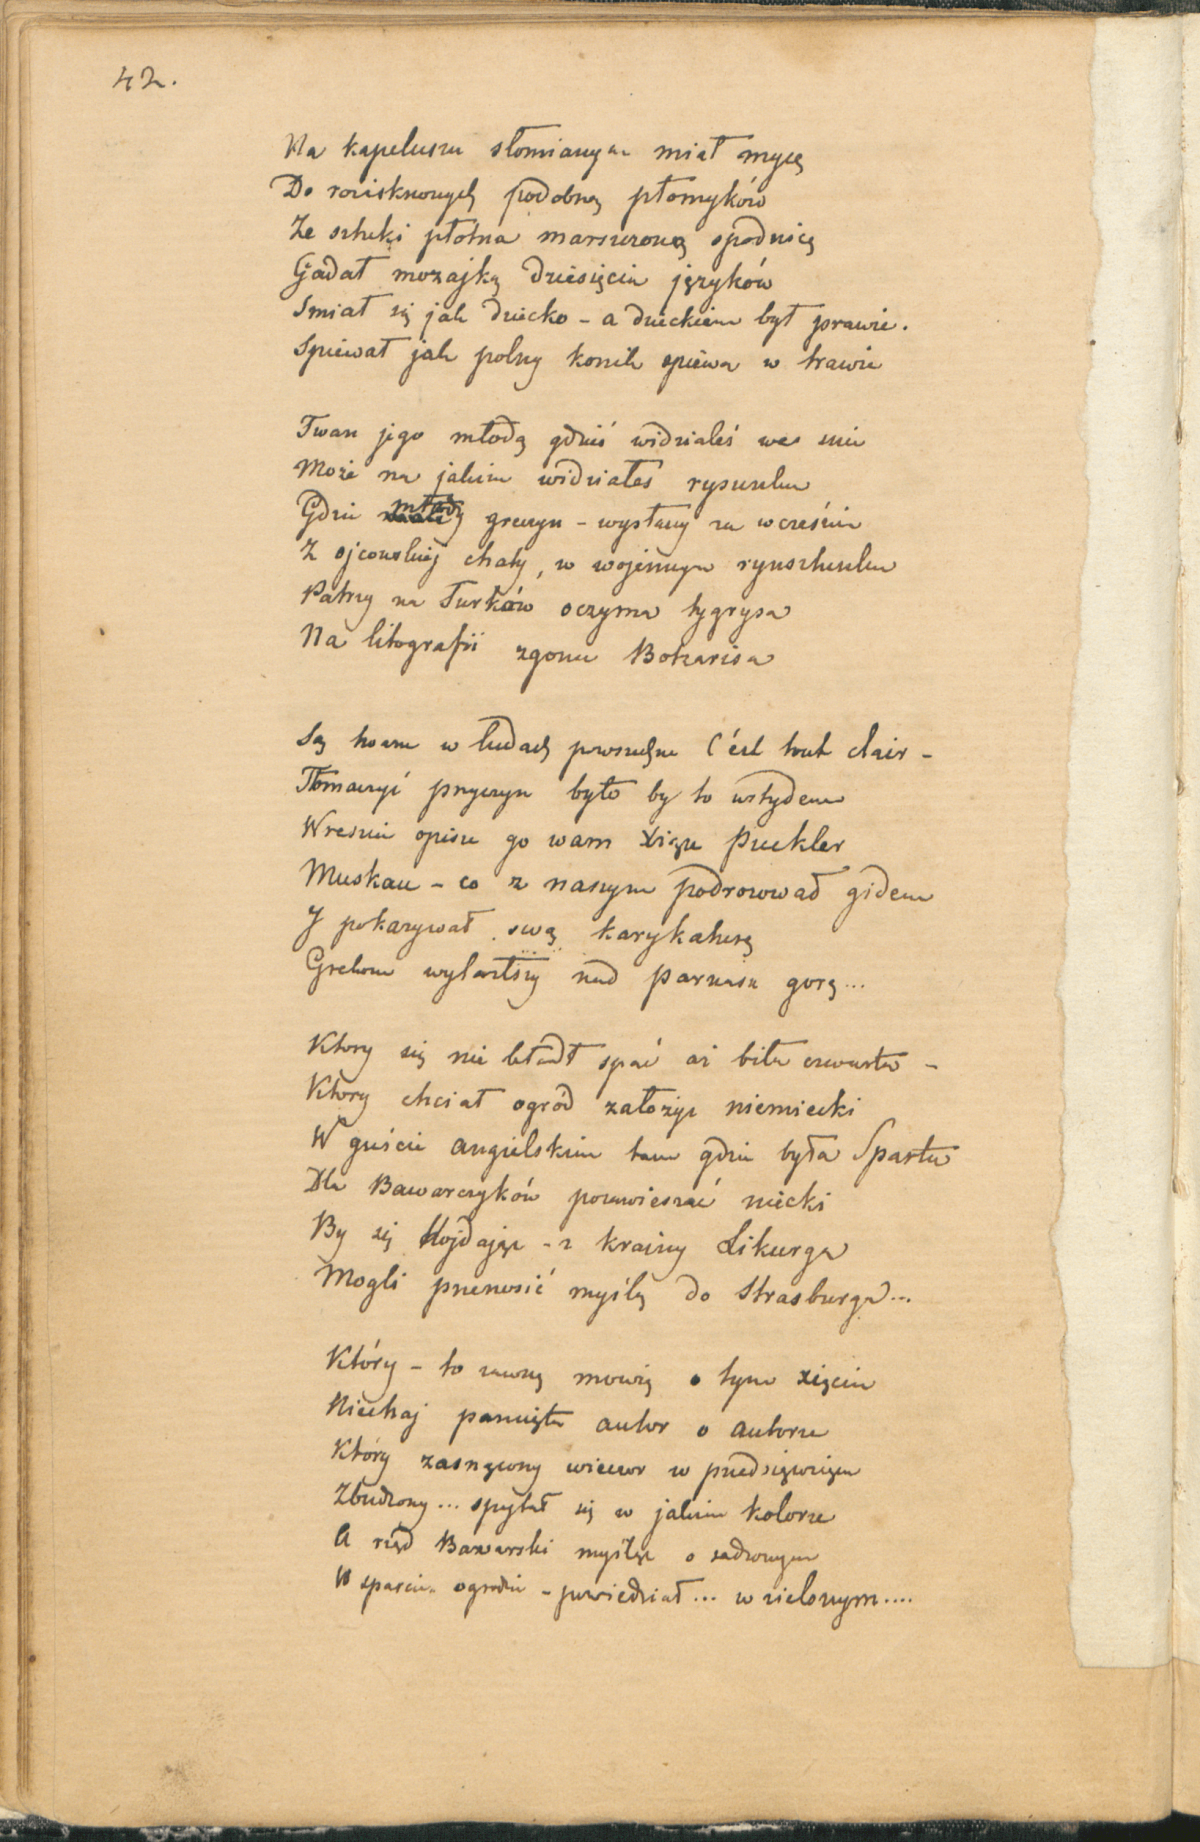 42.
Na kapeluszu słomianym miał mycę
Do roziskrzonych podobną płomyków
Ze sztuki płótna marszczoną spodnicę
Gadał mozajką dziesięciu języków
Smiał się jak dziecko – a dzieckiem był prawie.
Spiéwał jak polny konik spiéwa w trawie
Twarz jego młodą gdzieś widziałeś we snie
Może na jakim widziałeś rysunku
Gdzie młody greczyn – wysłany za wcześnie
Z ojcowskiéj chaty, w wojennym rynsztunku
Patrzy na Turków oczyma tygrysa
Na litografii zgonu Botzarisa
Są twarze w ludach powszechne C'ést tout clair –
Tłomaczyć przyczyn było by to wstydem
Wreszcie opisze go wam Xiąże Puckler
Muskau – co z naszym podrozował gidem
I pokazywał swą karykaturą
Grekom wylazłszy nad Parnasu gorą...
Ktory się nie kładł spać aż biła czwarta –
Ktory chciał ogród założyc niemiecki
W guście angielskim tam gdzie była Sparta
Dla Bawarczyków pozawieszać niecki
By się hojdając – z krainy Likurga
Mogli przenosić myślą do Strasburga...
Który – to zawszę mowią o tym xięciu
Niechaj pamięta autor o autorze
Który zasnąwszy wieczor w przedsięwzięciu
Zbudzony... spytał się w jakim kolorze
A rząd Bawarski myśląc o sadzonym
W sparcie ogrodzie – powiedział... w zielonym....